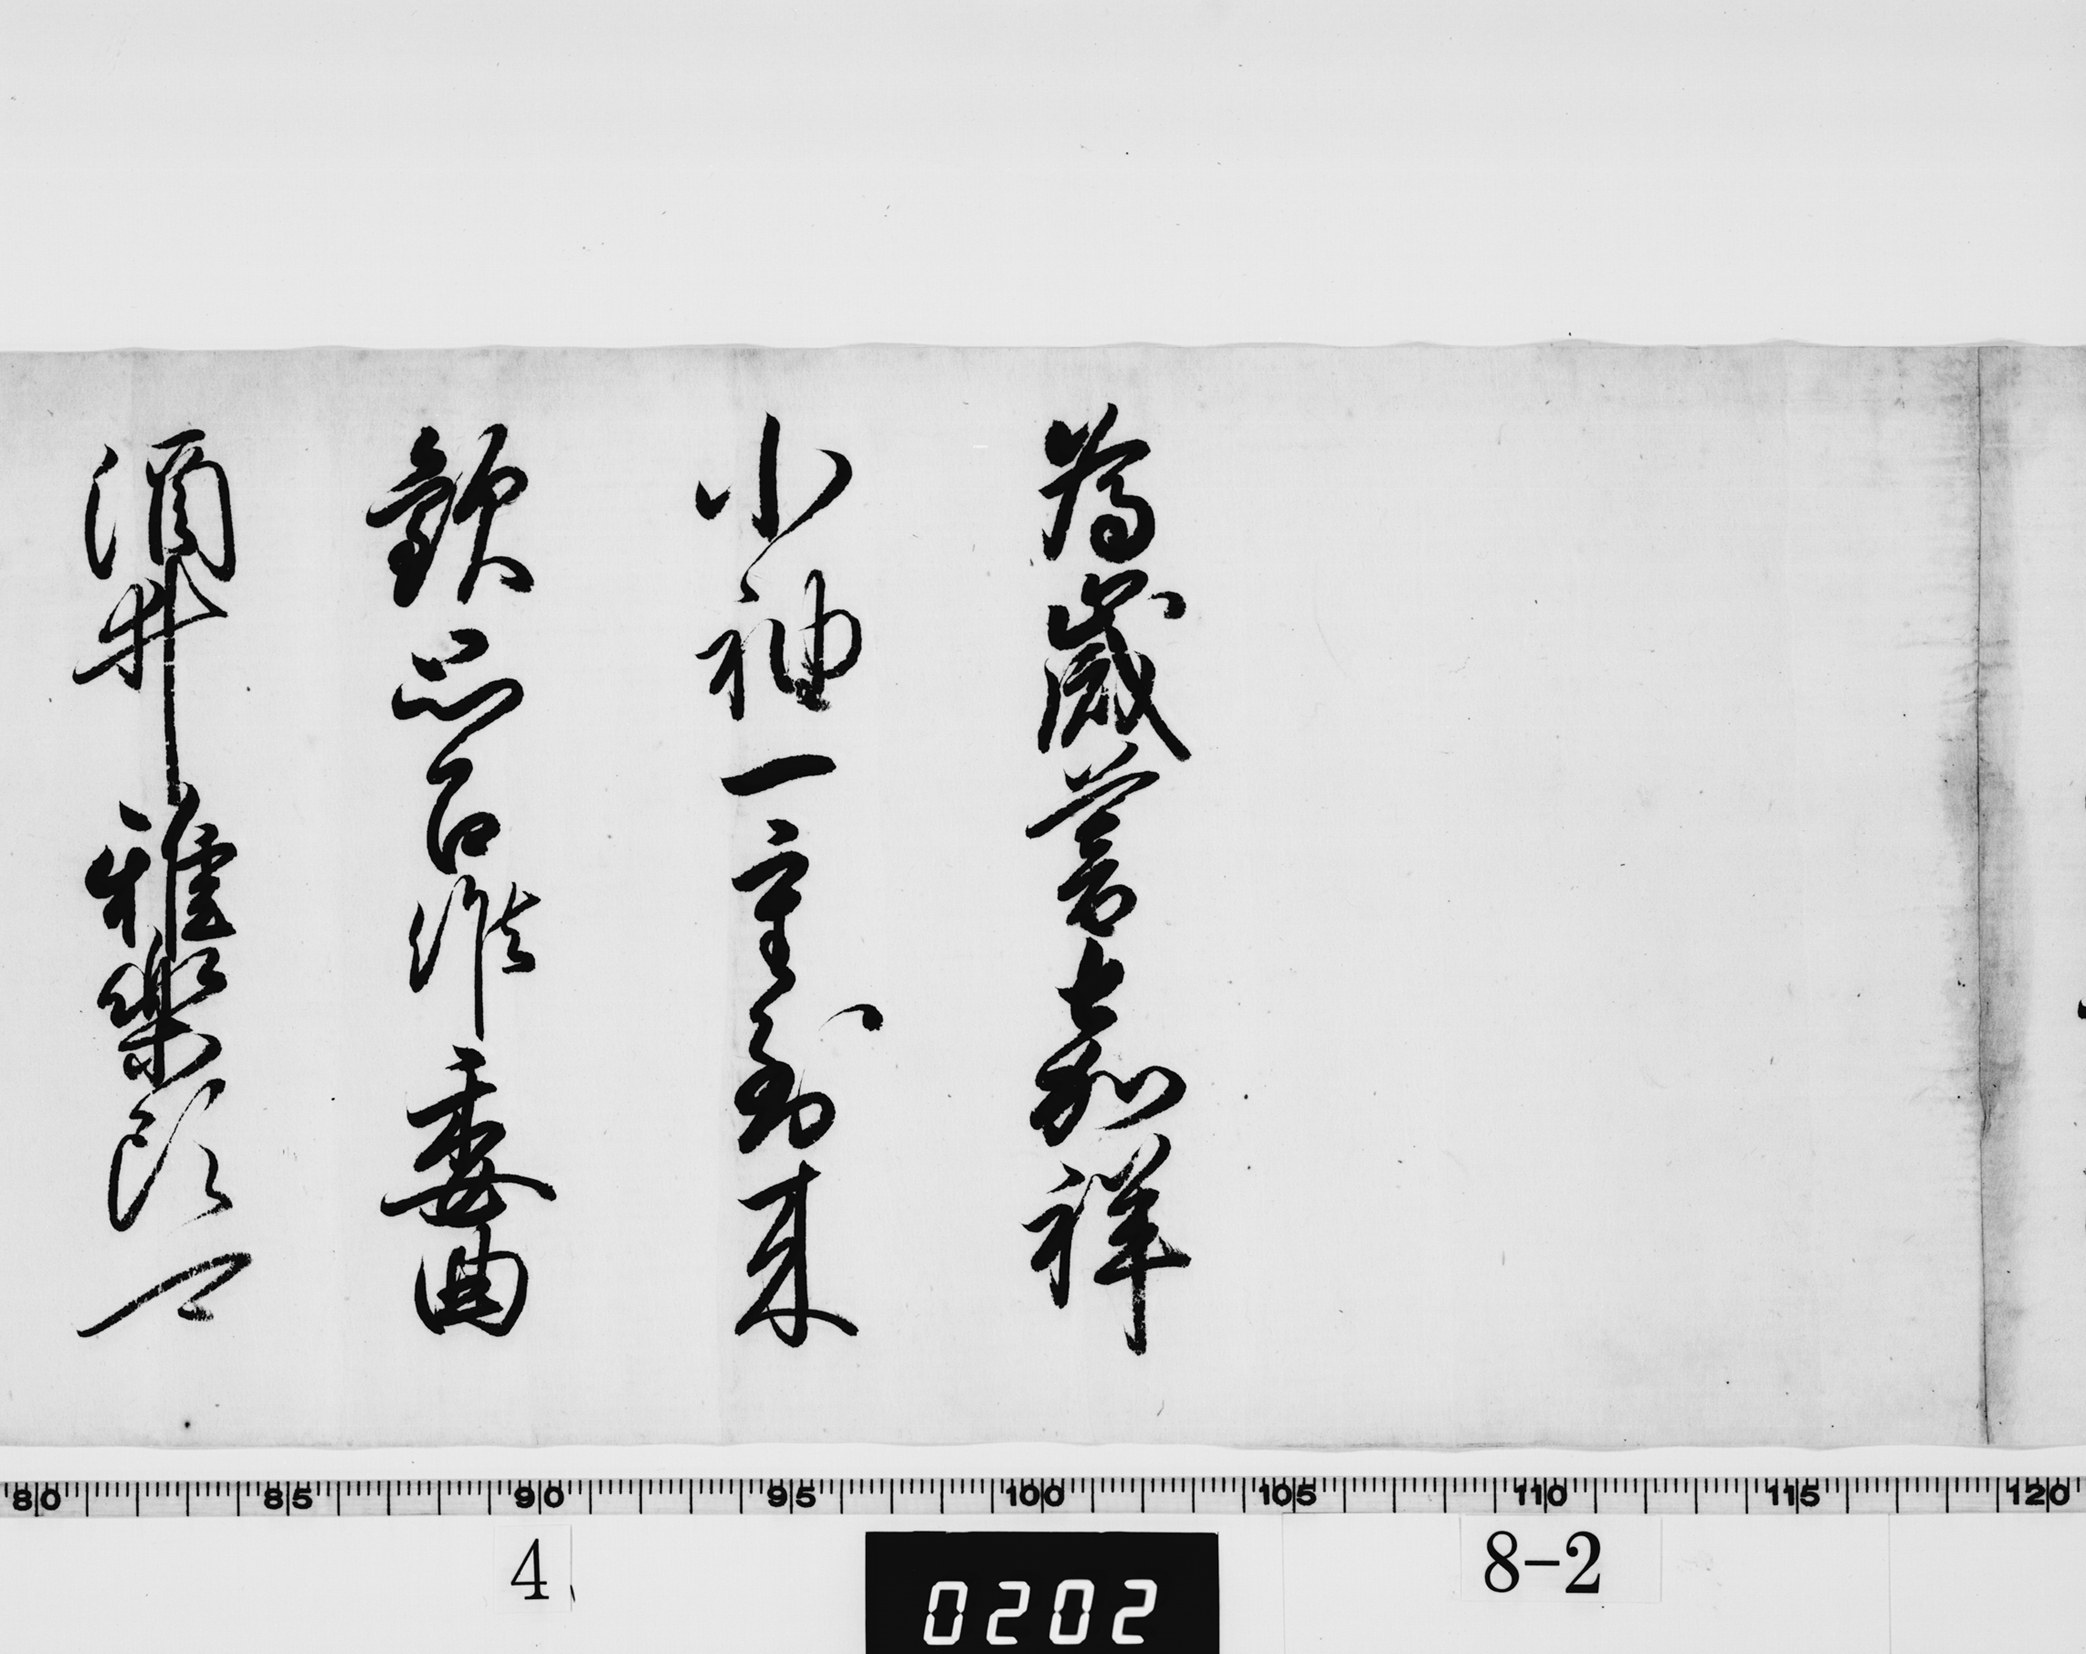 為歳暮嘉祥
小袖一重到来
歓思召候委曲
酒井雅楽頭可
80 85 90 95 100 105 110 115 120
4 8-2
0202